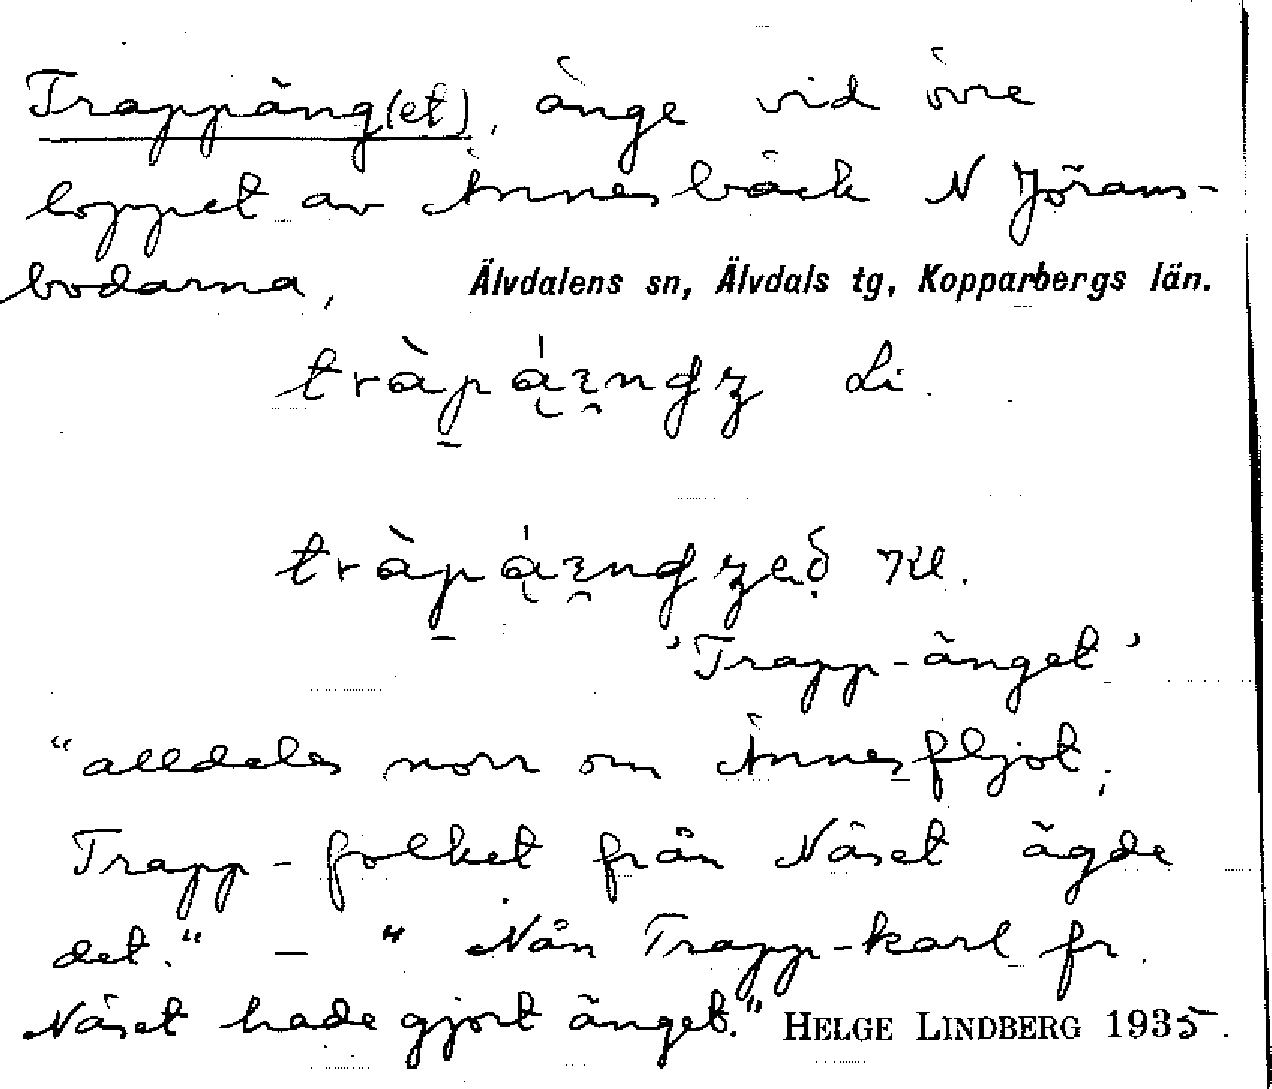 Trappäng(et), änge vid övre
loppet av Ännesbäck N Jörans-
bodarna, Älvdalens sn, Älvdals tg, Kopparbergs län.
Li.
Kl.
'Trapp-änget'
"alldeles norr om Ännesfljot;
Trapp-folket från Näset ägde
det." – "Nån Trapp-karl fr.
Näset hade gjort änget." HELGE LINDBERG 1935.